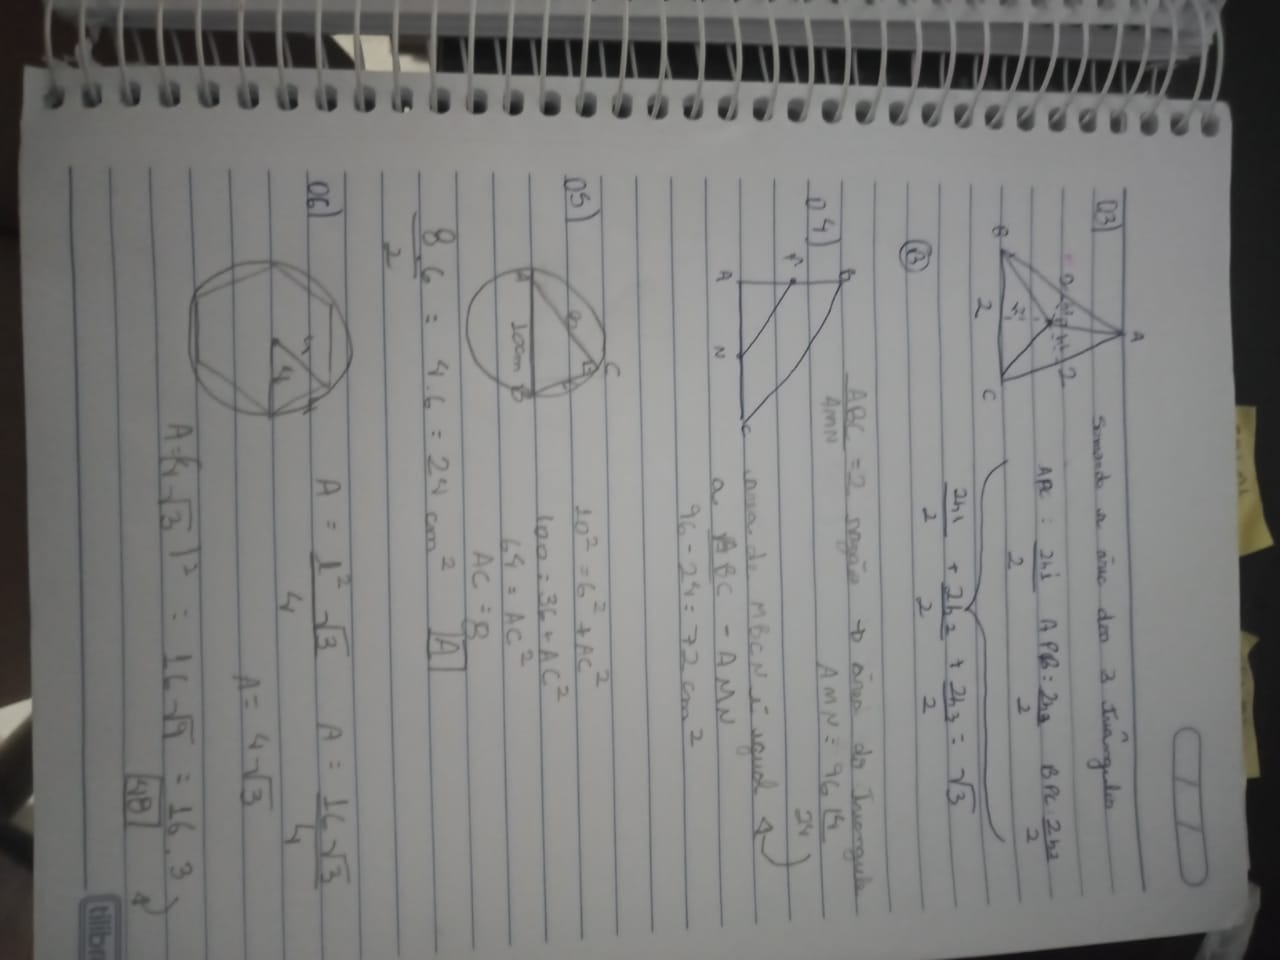 03)
Somando a área dos 3 triângulos
A
2
B
2
C
APC : 2h1 APB: 2h2 BPC: 2h3
2 2 2
2h1 + 2h2 + 2h3 = √3
2 2 2
B
04)
B
A
N
C
ABC = 2 razão → área do triangulo
AMN
AMN = 96 | 4
24
área de MBCN é igual
a ABC - AMN
96 - 24 = 72 cm²
05)
C
A
10cm
B
10² = 6² + AC²
100 = 36 + AC²
64 = AC²
AC = 8
8.6 = 4.6 = 24 cm² A
2
06)
4
4
A = l²√3 A = 16√3
4 4
A = 4√3
A = (4√3)² : 16√9 = 16.3
48
tilibra